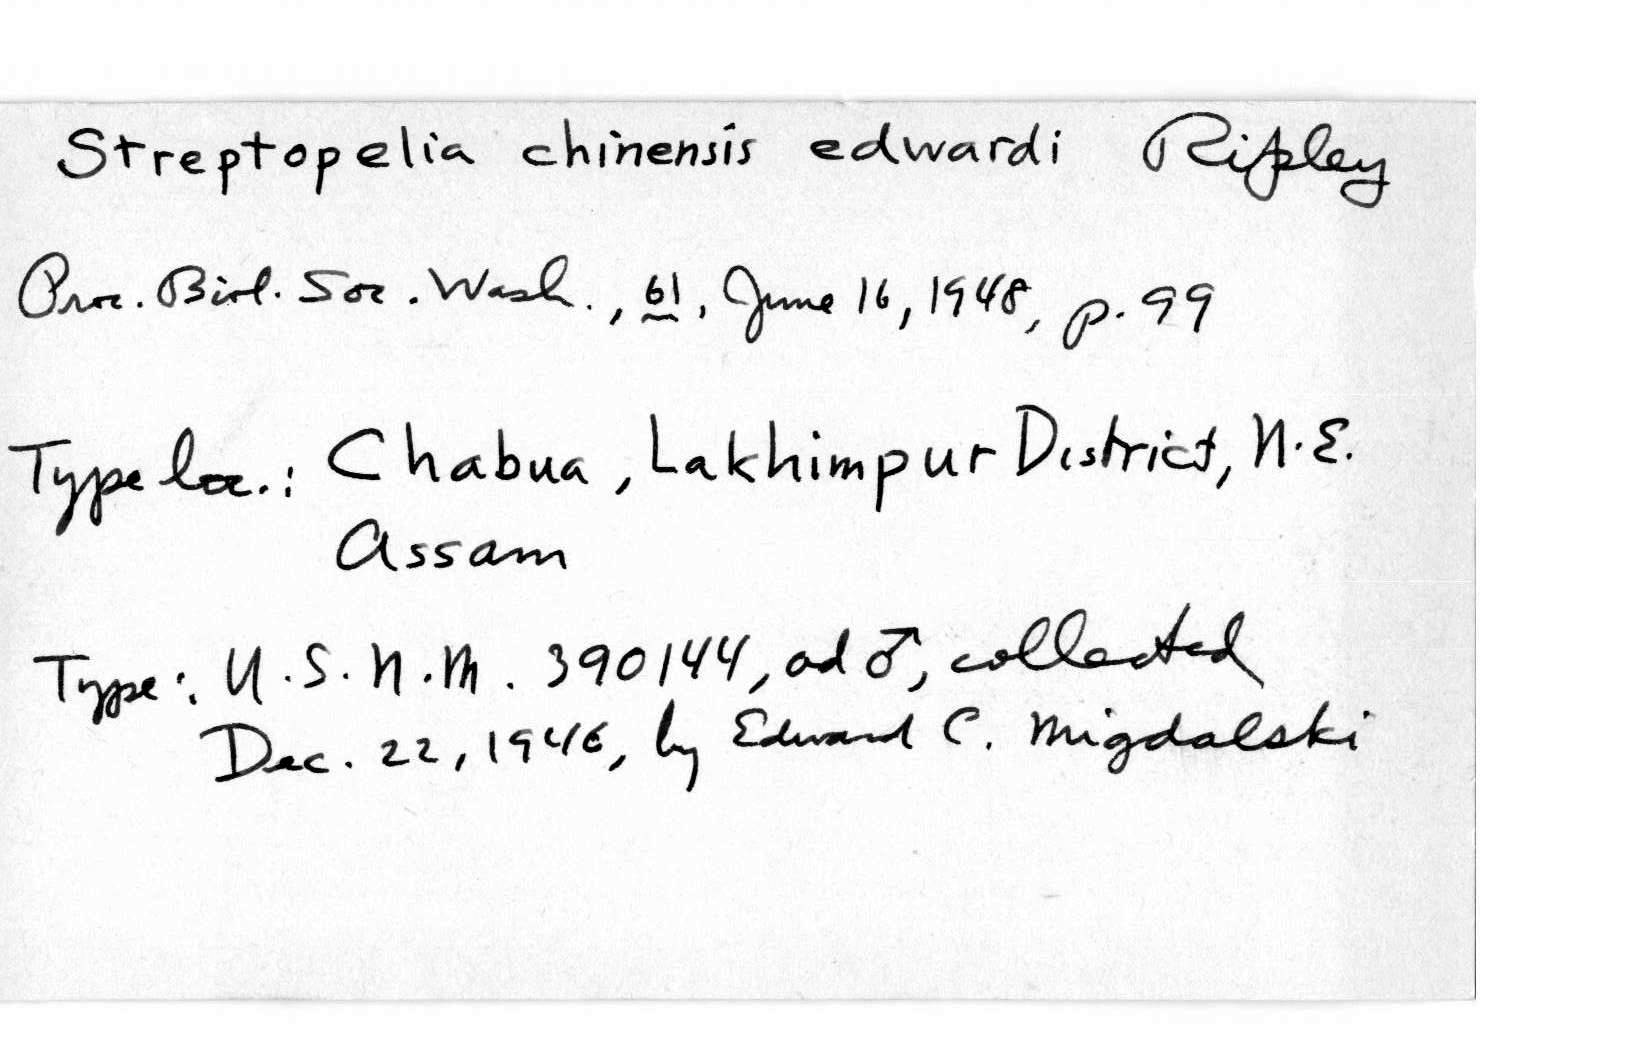 Streptopelia chinensis edwardi Ripley
Proc. Biol. Soc. Wash., 61, June 16, 1948, p. 99
Type loc.: Chabua, Lakhimpur District, N.E.
Assam
Type: U.S.N.M. 390144, ad ♂, collected
Dec. 22, 1946, by Edward C. Migdalski